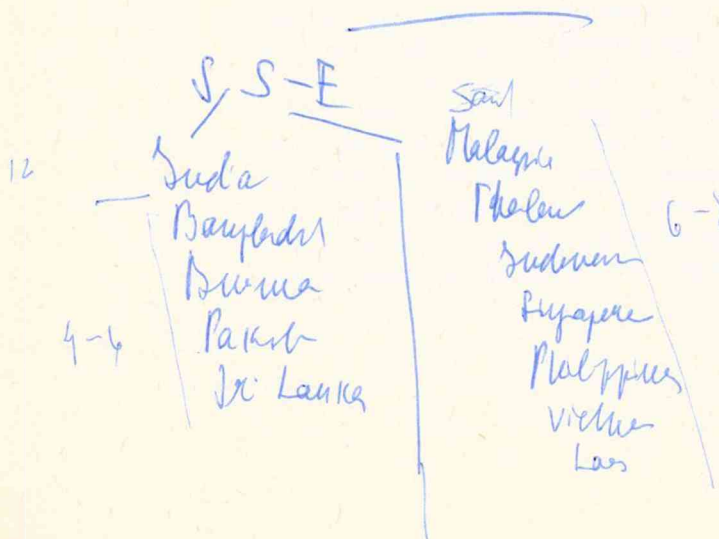 S, S-E
12
India
Bangladesh
Burma
Pakist
Sri Lanka
4-6
Malaysia
Indones
Singapore
Philippines
Vietna
Laos
6-